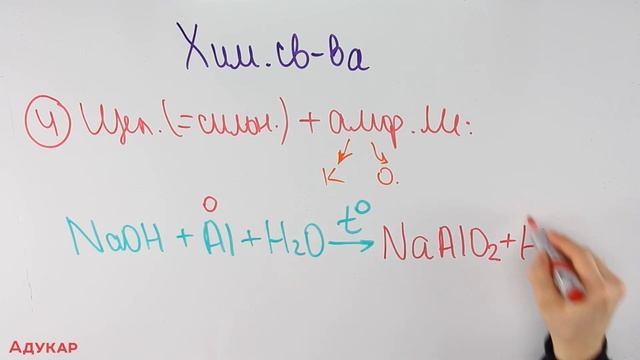 Хим. св-ва
4 Щел. (=сильн.) + амф. Ме:
К О.
0
NaOH + Al + H₂O t⁰→ NaAlO₂ + H
Адукар